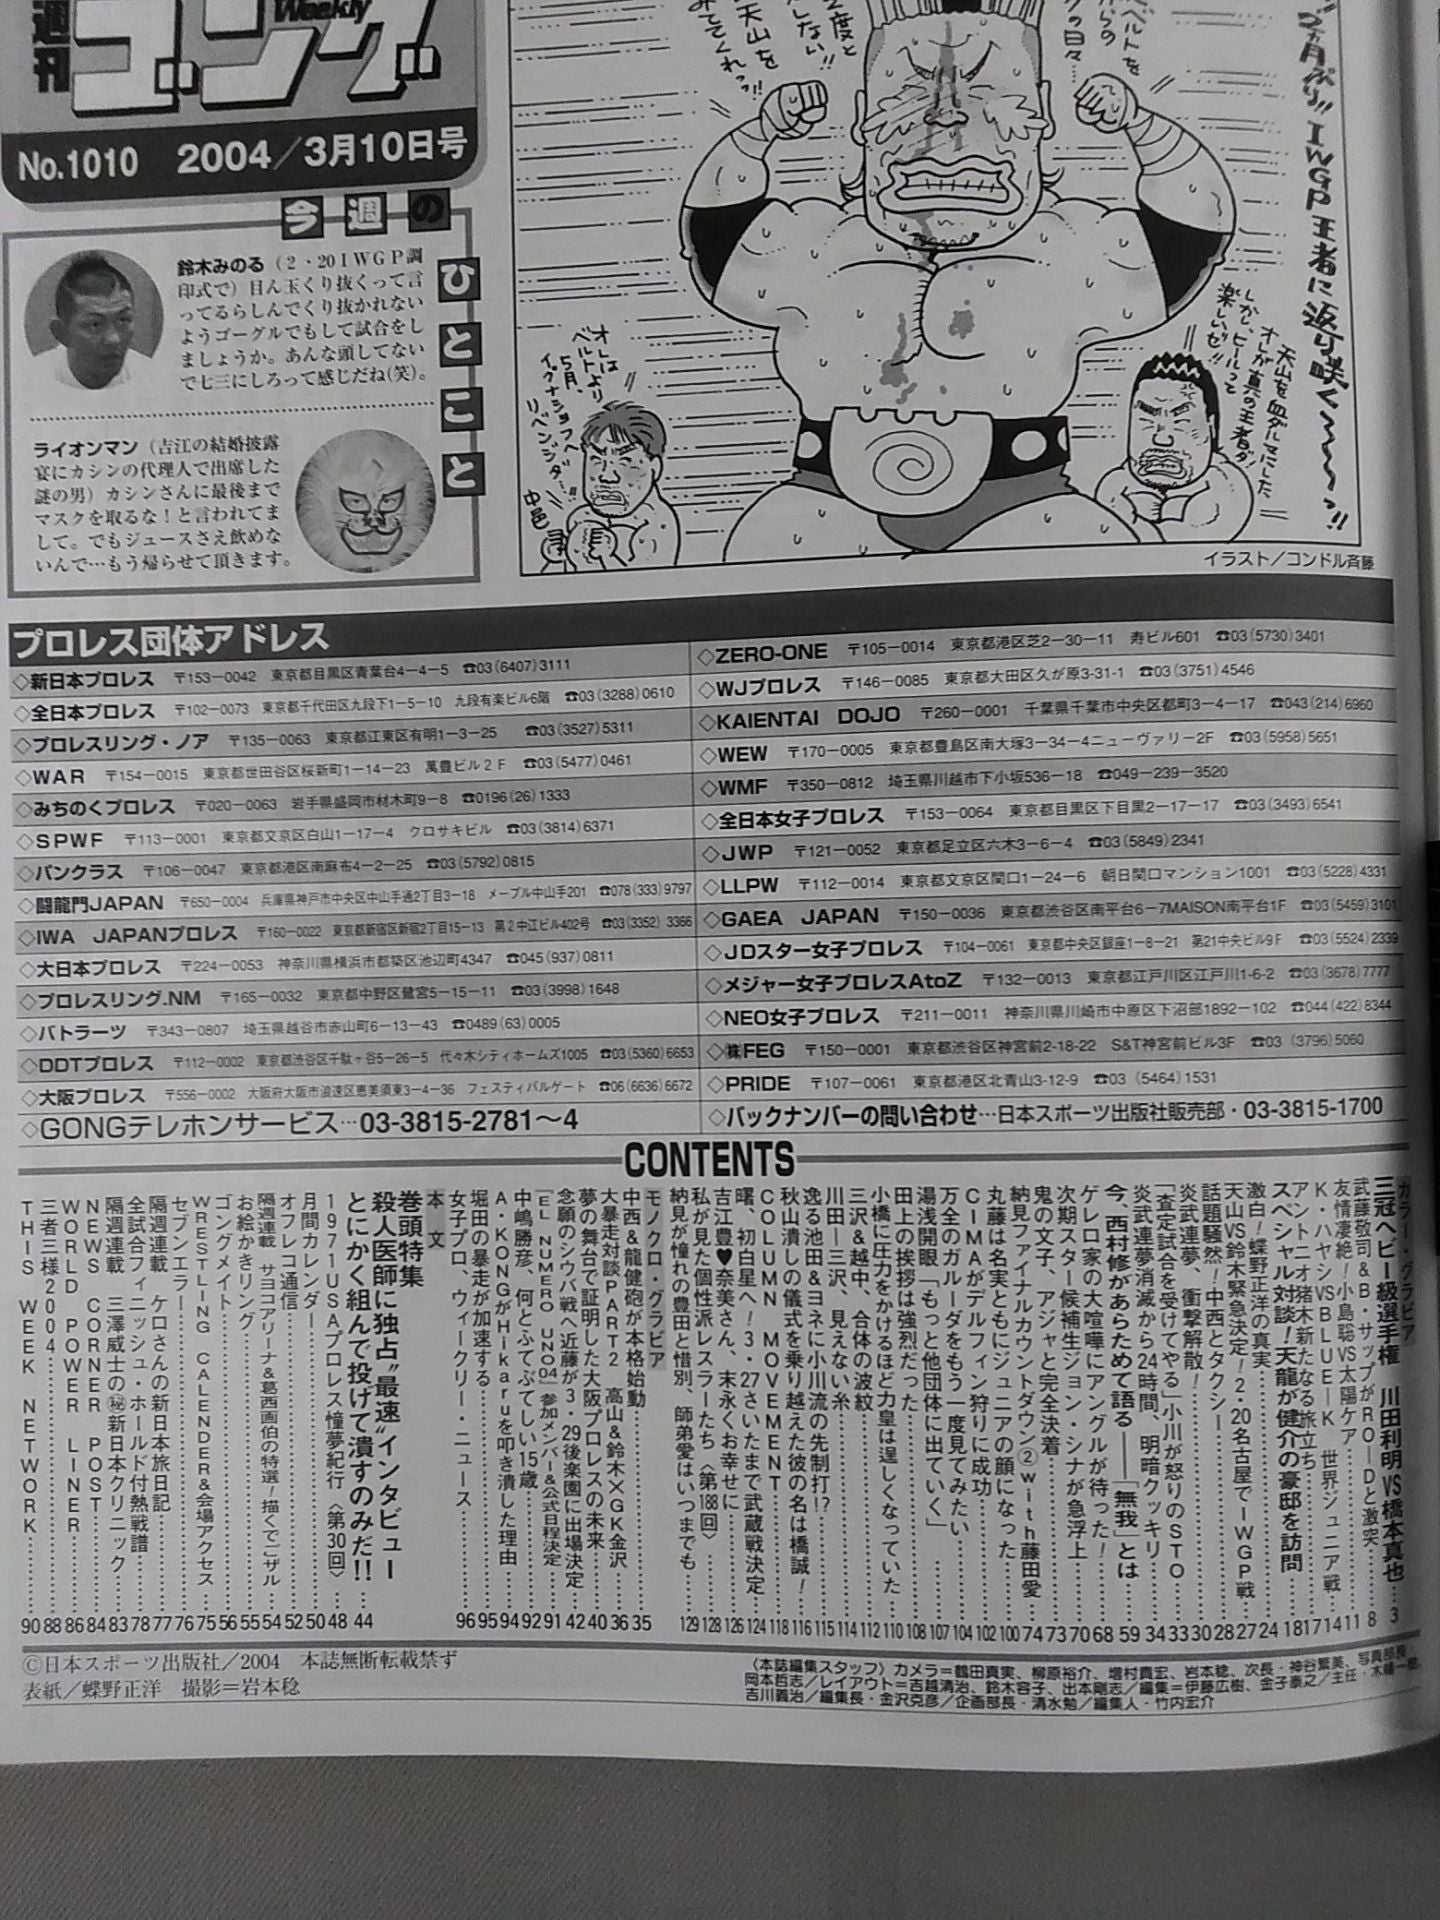 週刊
ゴング
Weekly
No.1010 2004／3月10日号
今週の
ひとこと
鈴木みのる（2・20IWGP調
印式で）目ん玉くり抜くって言
ってるらしんでくり抜かれない
ようゴーグルでもして試合をし
ましょうか。あんな頭してない
で七三にしろって感じだね(笑)。
ライオンマン（吉江の結婚披露
宴にカシンの代理人で出席した
謎の男）カシンさんに最後まで
マスクを取るな！と言われてま
して。でもジュースさえ飲めな
いんで…もう帰らせて頂きます。
2ヵ月ぶり!!IWGP王者に返り咲く〜〜〜っ!!
ベルトを
からの
の日々…
2度と
しない!!
天山を
みててくれっ!!
天山を血ダルマにした
オレが真の王者ダ!
しかし、ビールって
楽しいゼ!!
オレは
ベルトより
5月、
イグナショフへ
リベンジダー!!
中邑
イラスト／コンドル斉藤
プロレス団体アドレス
◇新日本プロレス 〒153－0042 東京都目黒区青葉台4－4－5 ☎03(6407)3111
◇全日本プロレス 〒102－0073 東京都千代田区九段下1－5－10 九段有楽ビル6階 ☎03(3288)0610
◇プロレスリング・ノア 〒135－0063 東京都江東区有明1－3－25 ☎03(3527)5311
◇WAR 〒154－0015 東京都世田谷区桜新町1－14－23 萬豊ビル2F ☎03(5477)0461
◇みちのくプロレス 〒020－0063 岩手県盛岡市材木町9－8 ☎0196(26)1333
◇SPWF 〒113－0001 東京都文京区白山1－17－4 クロサキビル ☎03(3814)6371
◇パンクラス 〒106－0047 東京都港区南麻布4－2－25 ☎03(5792)0815
◇闘龍門JAPAN 〒650－0004 兵庫県神戸市中央区中山手通2丁目3－18 メープル中山手201 ☎078(333)9797
◇IWA JAPANプロレス 〒160－0022 東京都新宿区新宿2丁目15－13 第2中江ビル402号 ☎03(3352)3366
◇大日本プロレス 〒224－0053 神奈川県横浜市都築区池辺町4347 ☎045(937)0811
◇プロレスリング.NM 〒165－0032 東京都中野区鷺宮5－15－11 ☎03(3998)1648
◇バトラーツ 〒343－0807 埼玉県越谷市赤山町6－13－43 ☎0489(63)0005
◇DDTプロレス 〒112－0002 東京都渋谷区千駄ヶ谷5－26－5 代々木シティホームズ1005 ☎03(5360)6653
◇大阪プロレス 〒556－0002 大阪府大阪市浪速区恵美須東3－4－36 フェスティバルゲート ☎06(6636)6672
◇GONGテレホンサービス…03-3815-2781〜4
◇ZERO-ONE 〒105－0014 東京都港区芝2－30－11 寿ビル601 ☎03(5730)3401
◇WJプロレス 〒146－0085 東京都大田区久が原3-31-1 ☎03(3751)4546
◇KAIENTAI DOJO 〒260－0001 千葉県千葉市中央区都町3－4－17 ☎043(214)6960
◇WEW 〒170－0005 東京都豊島区南大塚3－34－4ニューヴァリー2F ☎03(5958)5651
◇WMF 〒350－0812 埼玉県川越市下小坂536－18 ☎049－239－3520
◇全日本女子プロレス 〒153－0064 東京都目黒区下目黒2－17－17 ☎03(3493)6541
◇JWP 〒121－0052 東京都足立区六木3－6－4 ☎03(5849)2341
◇LLPW 〒112－0014 東京都文京区関口1－24－6 朝日関口マンション1001 ☎03(5228)4331
◇GAEA JAPAN 〒150－0036 東京都渋谷区南平台6－7MAISON南平台1F ☎03(5459)3101
◇JDスター女子プロレス 〒104－0061 東京都中央区銀座1－8－21 第21中央ビル9F ☎03(5524)2339
◇メジャー女子プロレスAtoZ 〒132－0013 東京都江戸川区江戸川1-6-2 ☎03(3678)7777
◇NEO女子プロレス 〒211－0011 神奈川県川崎市中原区下沼部1892－102 ☎044(422)8344
◇㈱FEG 〒150－0001 東京都渋谷区神宮前2-18-22 S&T神宮前ビル3F ☎03 (3796)5060
◇PRIDE 〒107－0061 東京都港区北青山3-12-9 ☎03 (5464)1531
◇バックナンバーの問い合わせ…日本スポーツ出版社販売部・03-3815-1700
CONTENTS
カラー・グラビア
三冠ヘビー級選手権 川田利明VS橋本真也…3
武藤敬司&B・サップがRO－Dと激突…8
友情凄絶！小島聡VS太陽ケア…11
K・ハヤシVSBLUE－K 世界ジュニア戦…14
アントニオ猪木新たなる旅立ち…17
スペシャル対談！天龍が健介の豪邸を訪問…18
激白！蝶野正洋の真実…24
天山VS鈴木緊急決定！2・20名古屋でIWGP戦…27
話題騒然！中西とタクシー…28
炎武連夢、衝撃解散！…30
「査定試合を受けてやる」小川が怒りのSTO…33
炎武連夢消滅から24時間、明暗クッキリ…34
今、西村修があらためて語る――「無我」とは…59
ゲレロ家の大喧嘩にアングルが待った！…68
次期スター候補生ジョン・シナが急浮上…70
鬼の文子、アジャと完全決着…73
納見ファイナルカウントダウン②with藤田愛…74
丸藤は名実ともにジュニアの顔になった…100
CIMAがデルフィン狩りに成功…102
万全のガルーダをもう一度見てみたい…104
湯浅開眼「もっと他団体に出ていく」…107
田上の挨拶は強烈だった…108
小橋に圧力をかけるほど力皇は逞しくなっていた…110
三沢&越中、合体の波紋…112
川田－三沢、見えない糸…114
逸る池田&ヨネに小川流の先制打!?…115
秋山潰しの儀式を乗り越えた彼の名は橋誠！…116
COLUMN MOVEMENT…118
曙、初白星へ！3・27さいたまで武蔵戦決定…124
吉江豊♥奈美さん、末永くお幸せに…126
私が見た個性派レスラーたち〈第188回〉…128
納見が憧れの豊田と惜別、師弟愛はいつまでも…129
モノクロ・グラビア
中西&龍健砲が本格始動…35
大暴走対談PART2 高山&鈴木×GK金沢…36
夢の舞台で証明した大阪プロレスの未来…40
念願のシウバ戦へ近藤が3・29後楽園に出場決定…42
「EL NUMERO UNO04」参加メンバー&公式日程決定…91
中嶋勝彦、何とふてぶてしい15歳…92
A・KONGがHikaruを叩き潰した理由…94
堀田の暴走が加速する…95
女子プロ、ウィークリー・ニュース…96
本文
巻頭特集
殺人医師に独占“最速”インタビュー
とにかく組んで投げて潰すのみだ!!…44
1971USAプロレス憧夢紀行〈第30回〉…48
月間カレンダー…50
オフレコ通信…52
隔週連載 サヨコアリーナ&葛西画伯の特選！描くでござル…54
お絵かきリング…55
ゴングメイト…56
WRESTLING CALENDER&会場アクセス…75
セブンエラー…76
隔週連載 ケロさんの新日本旅日記…77
全試合フィニッシュ・ホールド付熱戦譜…78
隔週連載 三澤威士の㊙新日本クリニック…83
NEWS CORNER POST…84
WORLD POWER LINER…86
三者三様2004…88
THIS WEEK NETWORK…90
©日本スポーツ出版社／2004 本誌無断転載禁ず
表紙／蝶野正洋 撮影＝岩本稔
〈本誌編集スタッフ〉カメラ＝鶴田真実、柳原裕介、増村貴宏、岩本稔、次長・神谷繁美、写真部長・
岡本哲志／レイアウト＝吉越清治、鈴木容子、出本剛志／編集＝伊藤広樹、金子泰之／主任・木幡一樹、
吉川義治／編集長・金沢克彦／企画部長・清水勉／編集人・竹内宏介